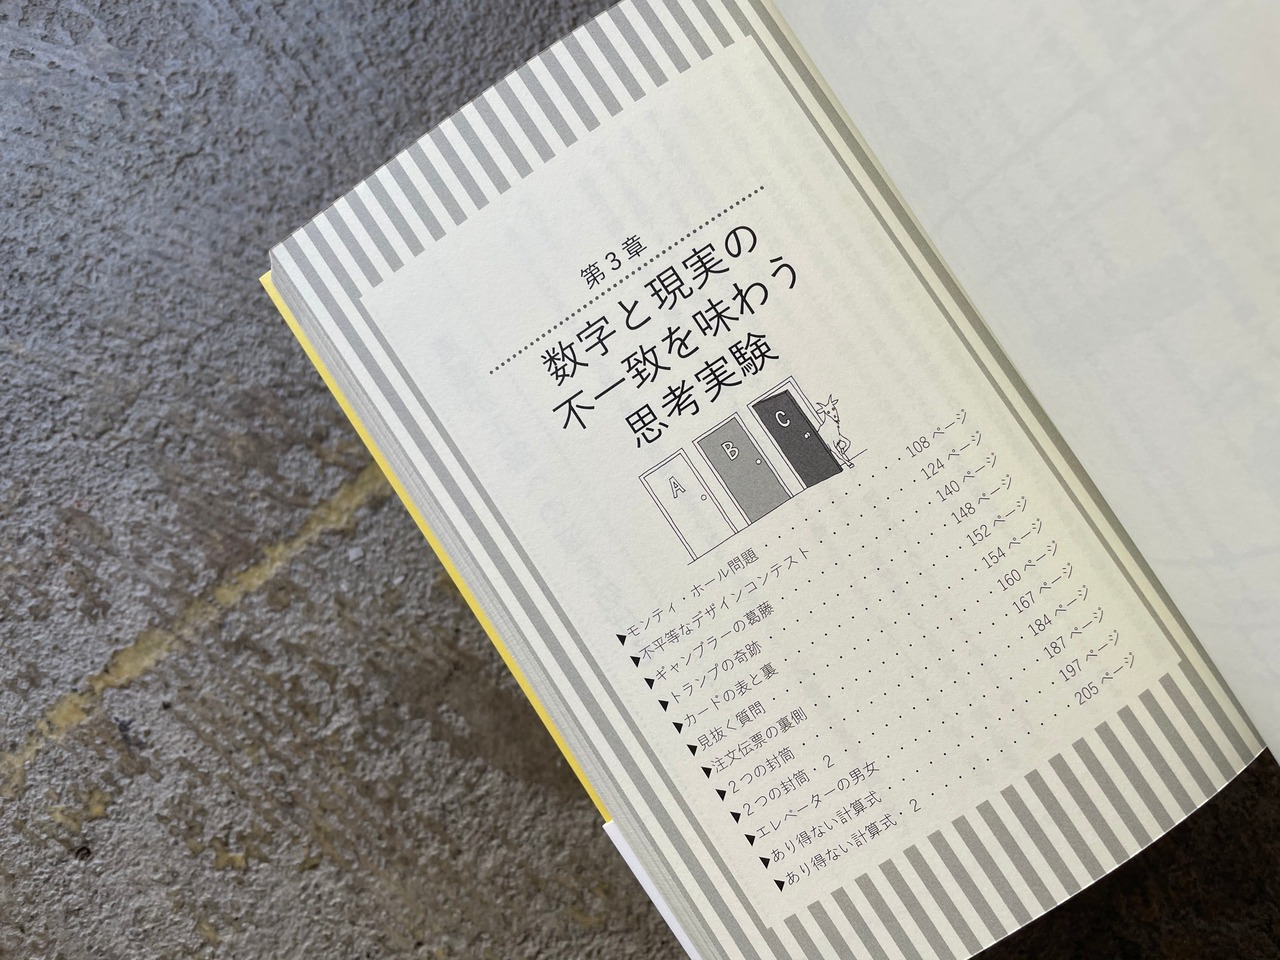 第3章
数字と現実の
不一致を味わう
思考実験
A B C
▶モンティ・ホール問題 ・・・・・・・・・ 108 ページ
▶不平等なデザインコンテスト ・・・・・・・ 124 ページ
▶ギャンブラーの葛藤 ・・・・・・・・・・ 140 ページ
▶トランプの奇跡 ・・・・・・・・・・・・ 148 ページ
▶カードの表と裏 ・・・・・・・・・・・・ 152 ページ
▶見抜く質問 ・・・・・・・・・・・・・・ 154 ページ
▶注文伝票の裏側 ・・・・・・・・・・・・ 160 ページ
▶2つの封筒 ・・・・・・・・・・・・・・ 167 ページ
▶2つの封筒・2 ・・・・・・・・・・・・ 184 ページ
▶エレベーターの男女 ・・・・・・・・・・ 187 ページ
▶あり得ない計算式 ・・・・・・・・・・・ 197 ページ
▶あり得ない計算式・2 ・・・・・・・・・ 205 ページ